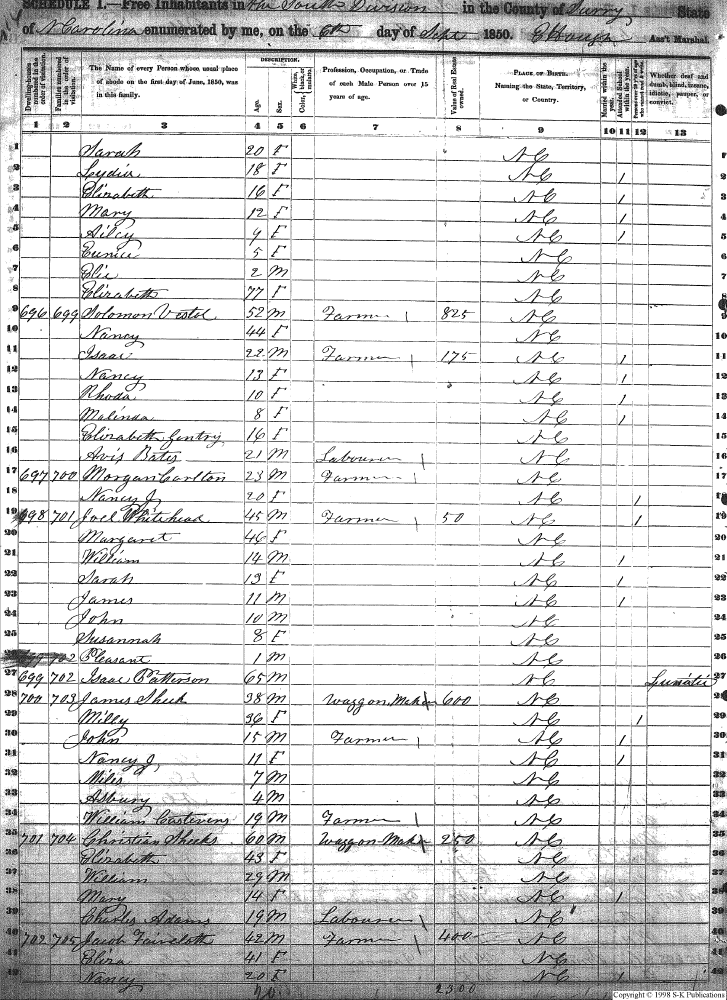 SCHEDULE I.—Free Inhabitants in the South Division in the County of Surry State
of N Carolina enumerated by me, on the 6th day of Sept 1850. Ass't Marshal.
Dwelling-houses numbered in the order of visitation.
Families numbered in the order of visitation.
The Name of every Person whose usual place of abode on the first day of June, 1850, was in this family.
DESCRIPTION.
Age.
Sex.
Color, White, black, or mulatto.
Profession, Occupation, or Trade of each Male Person over 15 years of age.
Value of Real Estate owned.
PLACE OF BIRTH. Naming the State, Territory, or Country.
Married within the year.
Attended School within the year.
Whether deaf and dumb, blind, insane, idiotic, pauper, or convict.
1 2 3 4 5 6 7 8 9 10 11 12 13
1 Sarah 20 F NC
2 Lydia 18 F NC / 2
3 Elizabeth 16 F NC / 3
4 Mary 12 F NC / 4
5 Ailcy 9 F NC / 5
6 Eunice 5 F NC 6
7 Elie 2 M NC 7
8 Elizabeth 77 F NC 8
9 696 699 Solomon Vestal 52 M Farmer / 825 NC
10 Nancy 44 F NC 10
11 Isaac 22 M Farmer / 175 NC / 11
12 Nancy 13 F NC / 12
13 Rhoda 10 F NC / 13
14 Malinda 8 F NC / 14
15 Elizabeth Gentry 16 F NC 15
16 Avis Bates 21 M Labourer / NC 16
17 697 700 Morgan Carlton 23 M Farmer / NC 17
18 Nancy J 20 F NC /
19 698 701 Joel Whitehead 45 M Farmer / 50 NC / 19
20 Margaret 46 F NC 20
21 William 14 M NC / 21
22 Sarah 13 F NC / 22
23 James 11 M NC / 23
24 John 10 M NC 24
25 Susannah 8 F NC 25
702 Pleasant 1 M NC 26
27 699 702 Isaac Patterson 65 M NC Lunatic 27
28 700 703 James Sheek 38 M Waggon Maker 600 NC 28
29 Milly 36 F NC / 29
30 John 15 M Farmer / NC / 30
31 Nancy J 11 F NC / 31
32 Miles 7 M NC 32
33 Asbury 4 M NC 33
34 William Castevens 19 M Farmer / NC 34
35 701 704 Christian Sheeks 60 M Waggon Maker 250 NC 35
36 Elizabeth 43 F NC 36
37 William 29 M NC 37
38 Mary 14 F NC / 38
39 Charles Adams 19 M Labourer / NC 39
40 702 705 Jacob Faircloth 42 M Farmer / 400 NC 40
41 Eliza 41 F NC 41
42 Nancy 20 F NC / 42
2300
Copyright © 1998 S-K Publications